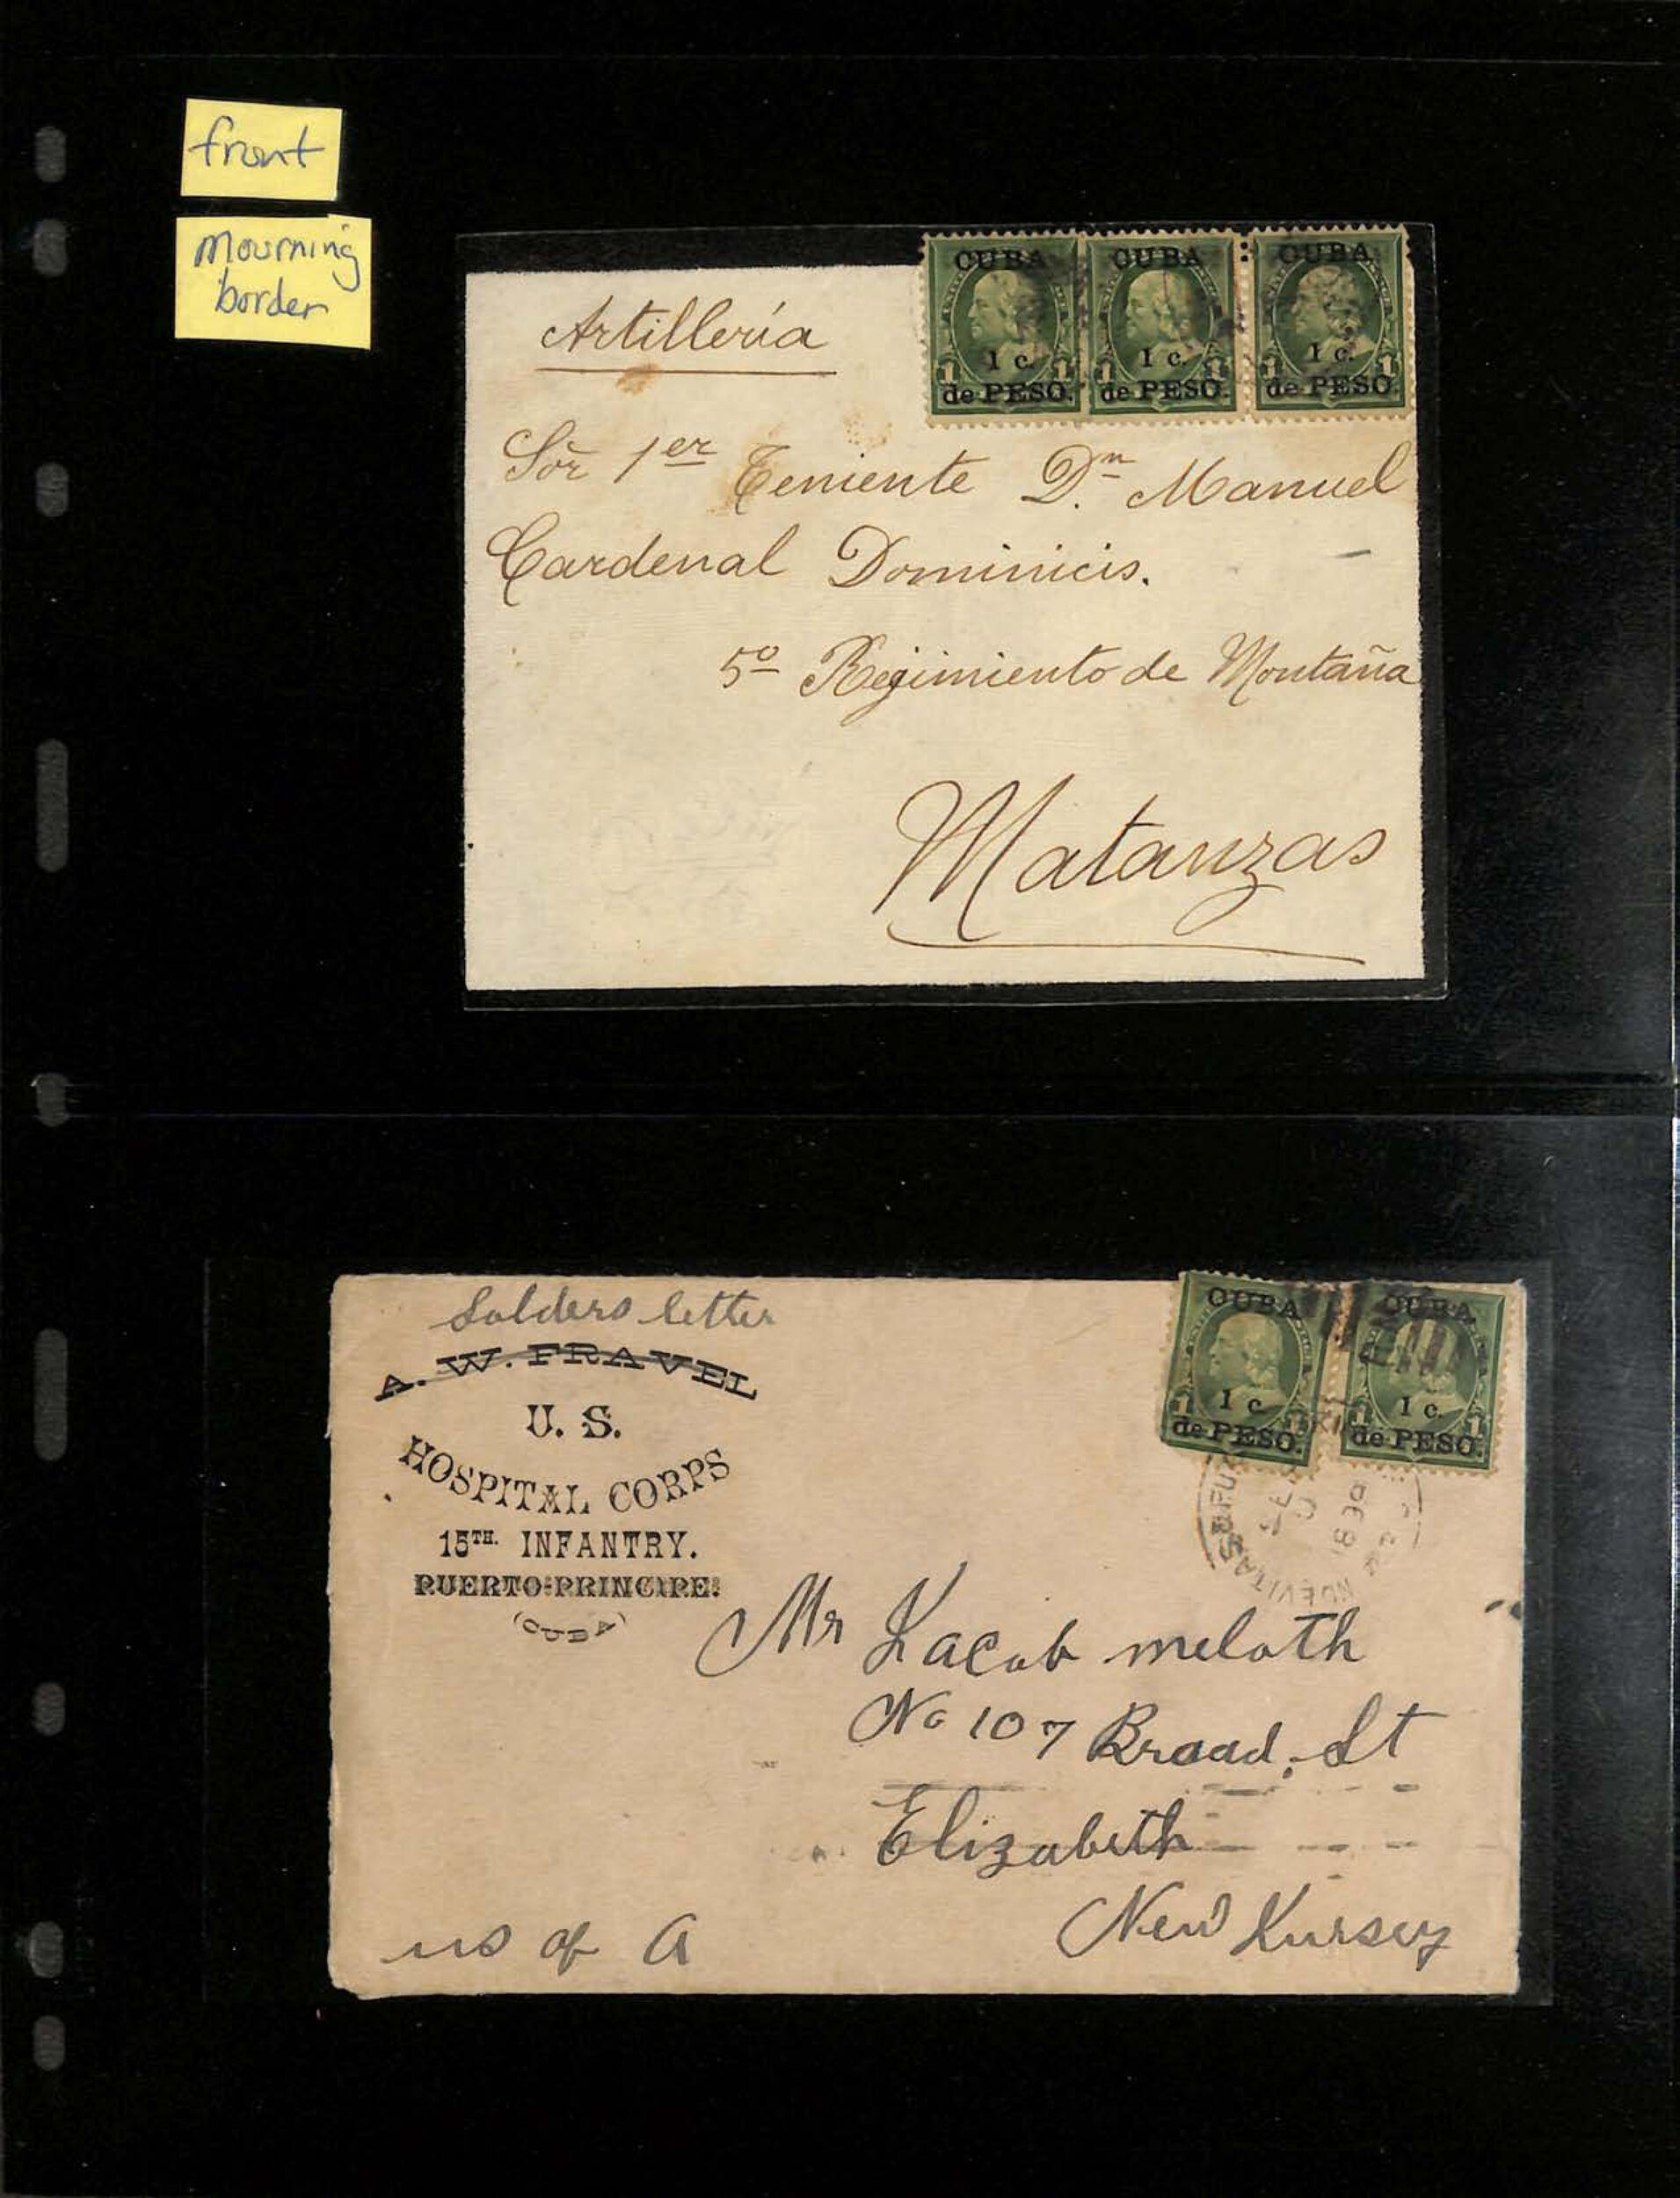 front
Mourning
border
CUBA CUBA CUBA
1 c. 1 c. 1 c.
1 1 1 1 1 1
de PESO. de PESO. de PESO.
Artillería
Sõr 1er Teniente Dn. Manuel
Cardenal Dominicis.
5o Regimiento de Montaña
Matanzas
Solders letter
A. W. FRAVEL
U. S.
HOSPITAL CORPS
15TH. INFANTRY.
PUERTO-PRINCIPE.
(CUBA)
CUBA CUBA
1 c. 1 c.
1 1 1 1
de PESO. de PESO.
NUEVITAS
Mr Kacob meloth
No 107 Broad. St
Elizabeth
New Kursey
us of A